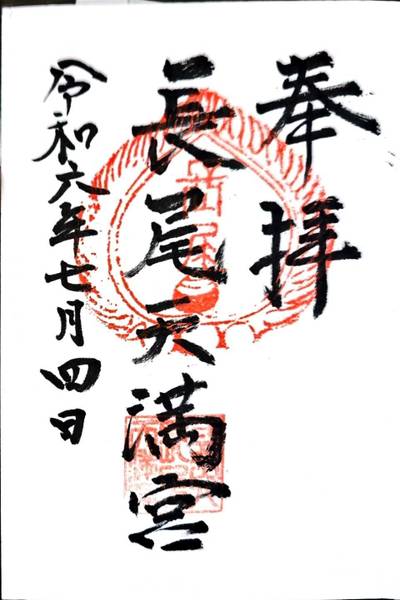 奉拝
長尾天満宮
令和六年七月四日